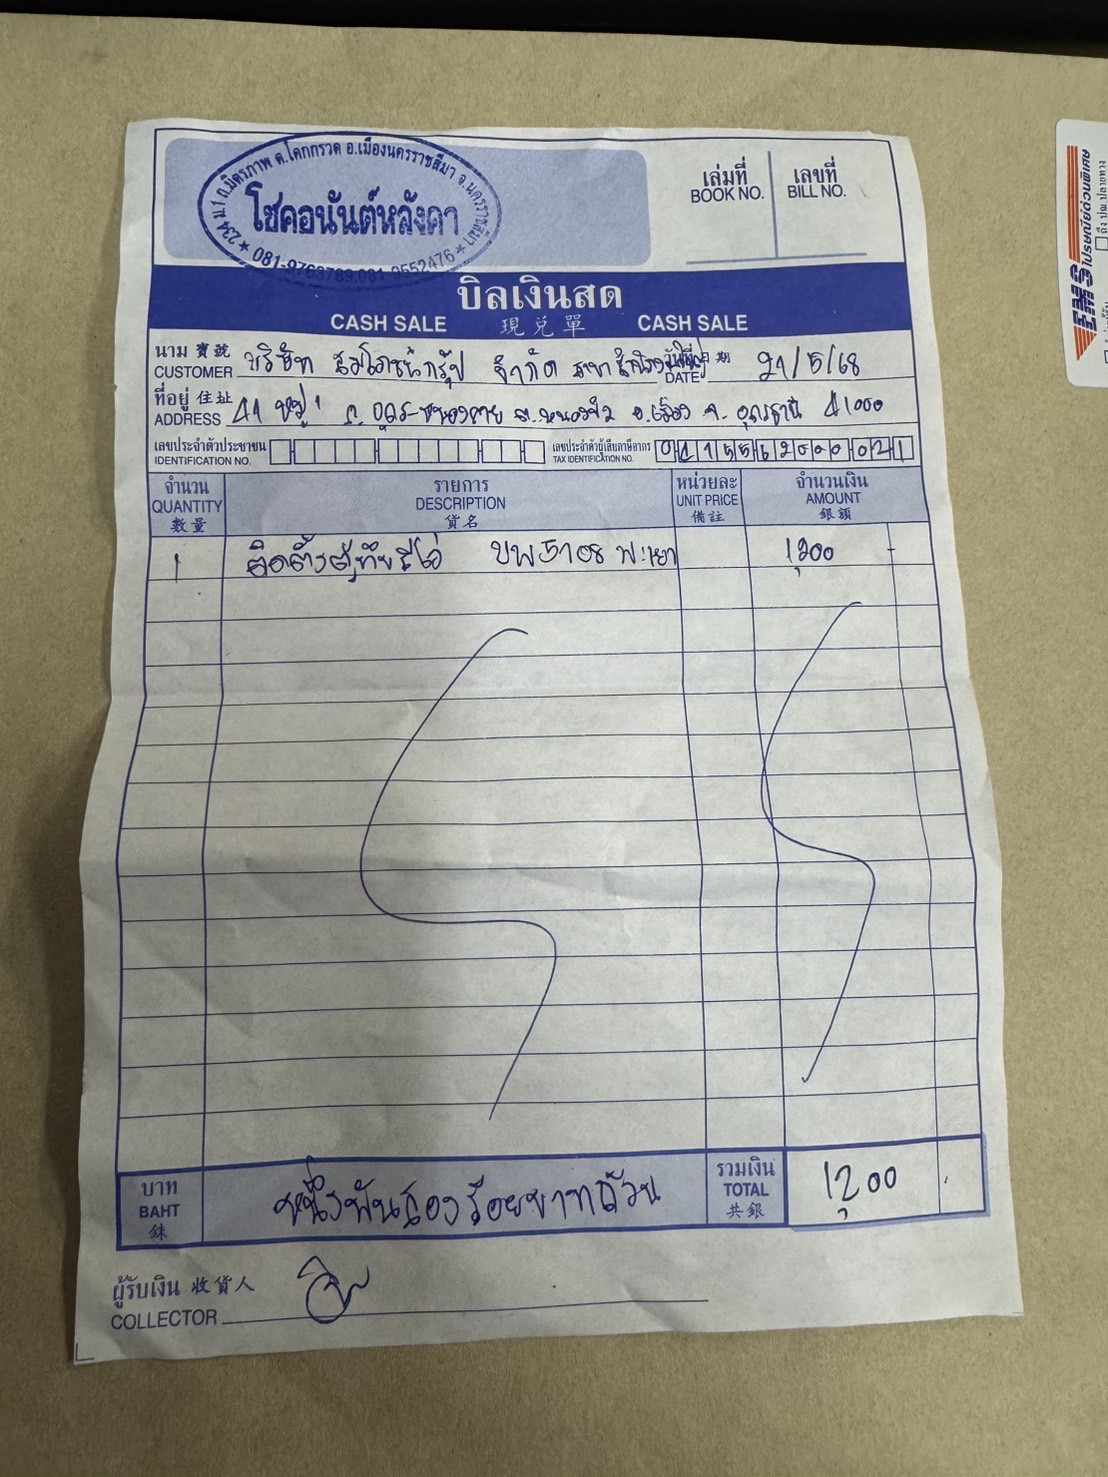 234 ม.1 ถ.มิตรภาพ ต.โคกกรวด อ.เมืองนครราชสีมา จ.นครราชสีมา
โชคอนันต์หลังคา
เล่มที่ เลขที่
BOOK NO. BILL NO.
บิลเงินสด
CASH SALE 現兌單 CASH SALE
นาม 寶號 บริษัท จำกัด วันที่ 日期 21/5/68
CUSTOMER DATE
ที่อยู่ 住址 41 หมู่ 1 ถ.อุดร-หนองคาย ต.หมากแข้ง อ.เมือง จ.อุดรธานี 41000
ADDRESS
เลขประจำตัวประชาชน เลขประจำตัวผู้เสียภาษีอากร
IDENTIFICATION NO. TAX IDENTIFICATION NO.
จำนวน รายการ หน่วยละ จำนวนเงิน
QUANTITY DESCRIPTION UNIT PRICE AMOUNT
數量 貨名 備註 銀額
1 ติดตั้งตู้ทึบ 5108 พะเยา 1,200 -
บาท หนึ่งพันสองร้อยบาทถ้วน รวมเงิน 1,200 -
BAHT TOTAL
銖 共銀
ผู้รับเงิน 收貨人
COLLECTOR
EMS ไปรษณีย์ด่วนพิเศษ